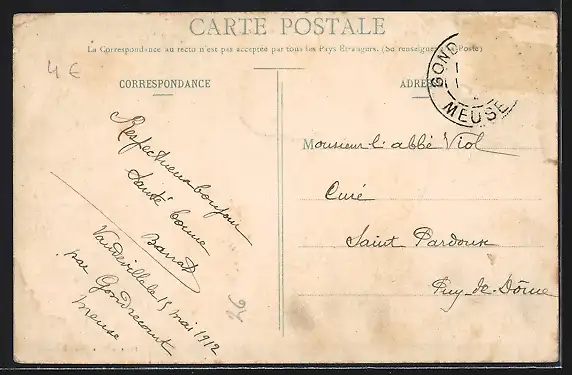 CARTE POSTALE
La Correspondance au recto n'est pas acceptée par tous les Pays Étrangers. (Se renseigner Poste)
4 €
CORRESPONDANCE
Respectueux bonjour
Santé bonne
Barrat
Vaudeville le 15 mai 1912
par Gondrecourt
Meuse
ADRE
GOND
MEUSE
Monsieur l'abbé Viol
Curé
Saint Pardoux
Puy-de-Dôme